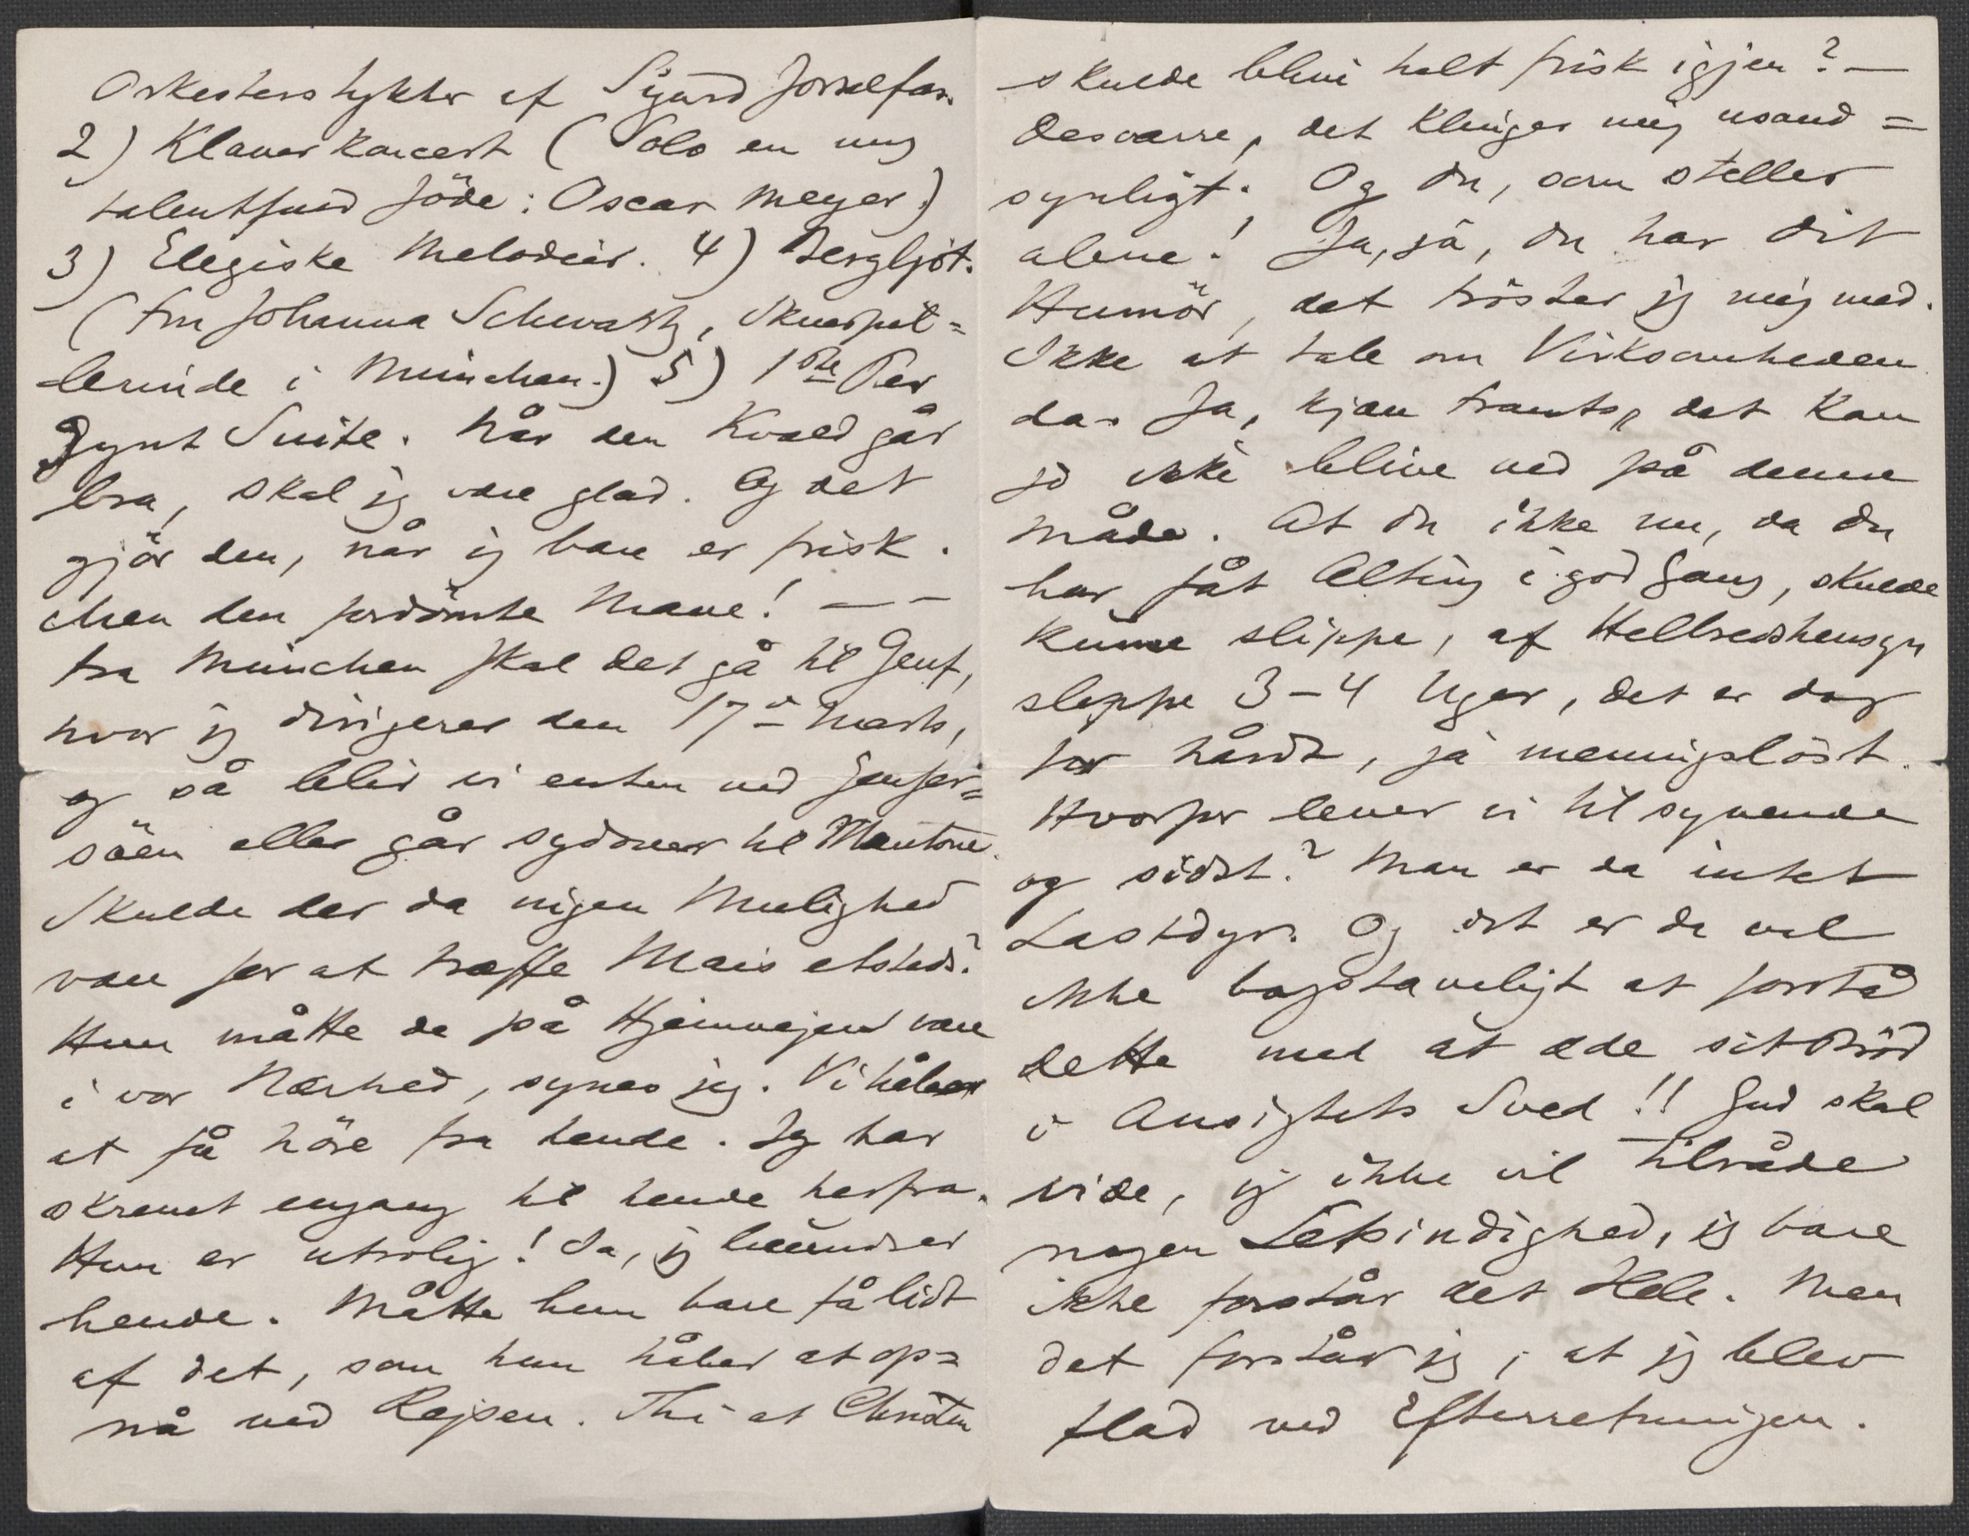 Orkesterstykker af Sigurd Jorsalfar.
2) Klaverkoncert (Solo en ung
talentfuld Jöde: Oscar Meyer.)
3) Elegiske Melodier. 4) Bergljot.
(Fru Johanna Schwartz, Skuespil=
lerinde i München.) 5) 1ste Per
Gynt Suite. Når den Kvæld går
bra, skal jeg være glad. Og det
gjör den, når jeg bare er frisk.
Men den fordömte Mave! — —
Fra München skal det gå til Genf,
hvor jeg dirigerer den 17de Marts,
og så blir vi enten ved Genfer=
söen eller går sydover til Mentone.
Skulde der da ingen Mulighed
være for at træffe Mais etsteds?
Hun måtte da på Hjemvejen være
i vor Nærhed, synes jeg. Vi håber
at få höre fra hende. Jeg har
skrevet engang til hende herfra.
Hun er utrolig! Ja, jeg beundrer
hende. Måtte hun bare få lidt
af det, som hun håber at op=
nå ved Rejsen. Thi at Christin
skulde blive helt frisk igjen? —
Desværre, det klinger mig usand=
synligt. Og Du, som steller
alene! Ja, ja, Du har dit
Humör, det tröster jeg mig med.
Ikke at tale om Virksomheden
da. Ja, kjære Frants, det kan
jo ikke blive ved på denne
Måde. At Du ikke nu, da Du
har fåt Alting i god Gang, skulde
kunne slippe, af Helbredshensyn
slippe 3–4 Uger, det er dog
for hårdt, ja meningslöst.
Hvorfor lever vi til syvende
og sidst? Man er da intet
Lastdyr. Og det er da vel
ikke bogstaveligt at forstå
dette med at æde sit Bröd
i Ansigtets Sved!! Gud skal
vide, jeg ikke vil tilråde
nogen Letsindighed, jeg bare
ikke forstår det Hele. Men
det forstår jeg, at jeg blev
flad ved Efterretningen.